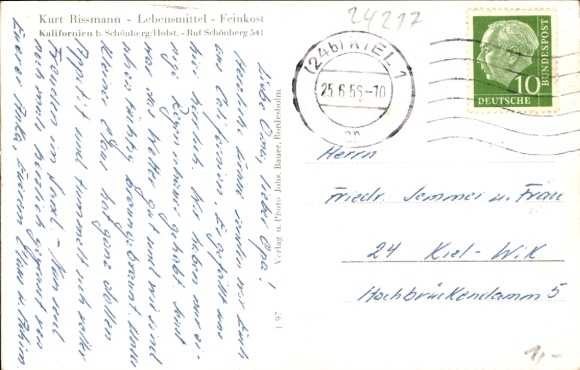 Kurt Rissmann - Lebensmittel - Feinkost
Kalifornien b. Schönberg/Holst. - Ruf Schönberg 541
24217
(24b) KIEL 1
25.6.56.-10
10
DEUTSCHE
BUNDESPOST
Liebe Oma, lieber Opa!
Herzliche Grüße senden wir Euch
aus Californien. Es gefällt uns
hier herrlich. Wir haben nur
Regen gehabt. Sonst
war das Wetter gut und wir sind
tüchtig braungebrannt. Unser
kleiner Claus hat ganz dollen
Appetit und tummelt sich voller
Freuden im Sand. - Nun seid
noch mals herzlich gegrüßt von
Verlag u. Photo Johs. Bauer, Bordesholm
1 97
Herrn
Friedr. Semmel u. Frau
24 Kiel-Wik
Hochbrückendamm 5
1,-